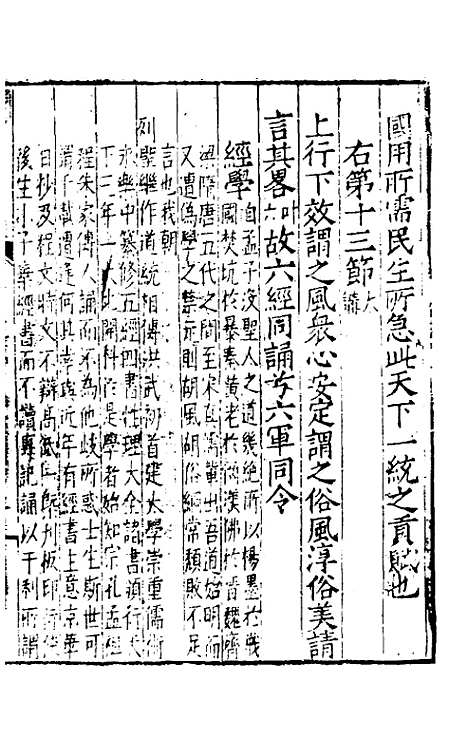 國用所需民生所急此天下一統之貢賦也
右第十三節
上行下效謂之風衆心安定謂之俗風淳俗美請
言其畧叶故六經同誦兮六軍同令
經學自孟子没聖人之道幾絶所以楊墨於戰
國焚坑於暴秦黄老於漢佛於晉魏齊
梁隋唐五代之間至宋真儒軰出吾道始明而
又遭僞學之禁元則胡風胡俗綱常頽敗不足
言也我朝
列聖繼作道統相傳洪武初首建大學崇重儒術
永樂中纂修五經四書性理大全諸書頒行天
下三年一大比開科於是學者始知宗孔孟經
程朱家傳人誦而不為他歧所惑士生斯世可
謂千載遭逢何其幸與近年有經書上意京華
日抄及程文時文不辯高低刋板印行
後生小子棄經書而不讀專記誦以干利所謂